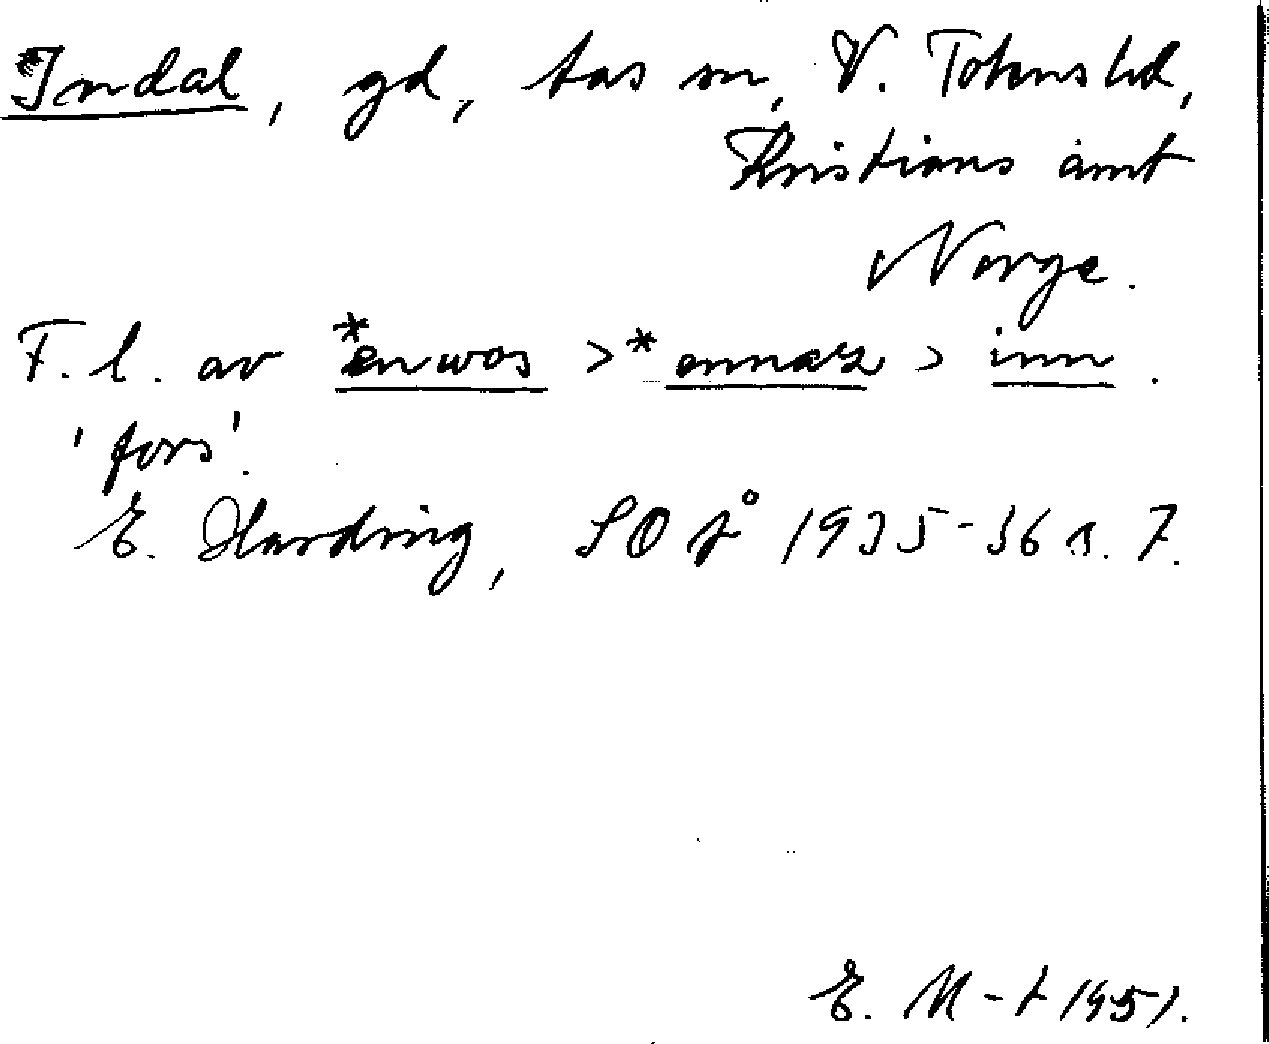 *Indal, gd, Aas sn, V. Totens hd,
Kristians amt
Norge.
F. l. av *enwos > *ennaz > inn.
'fors'.
E. Harding, SOÅ 1935-36 s. 7.
E. M-t 1951.